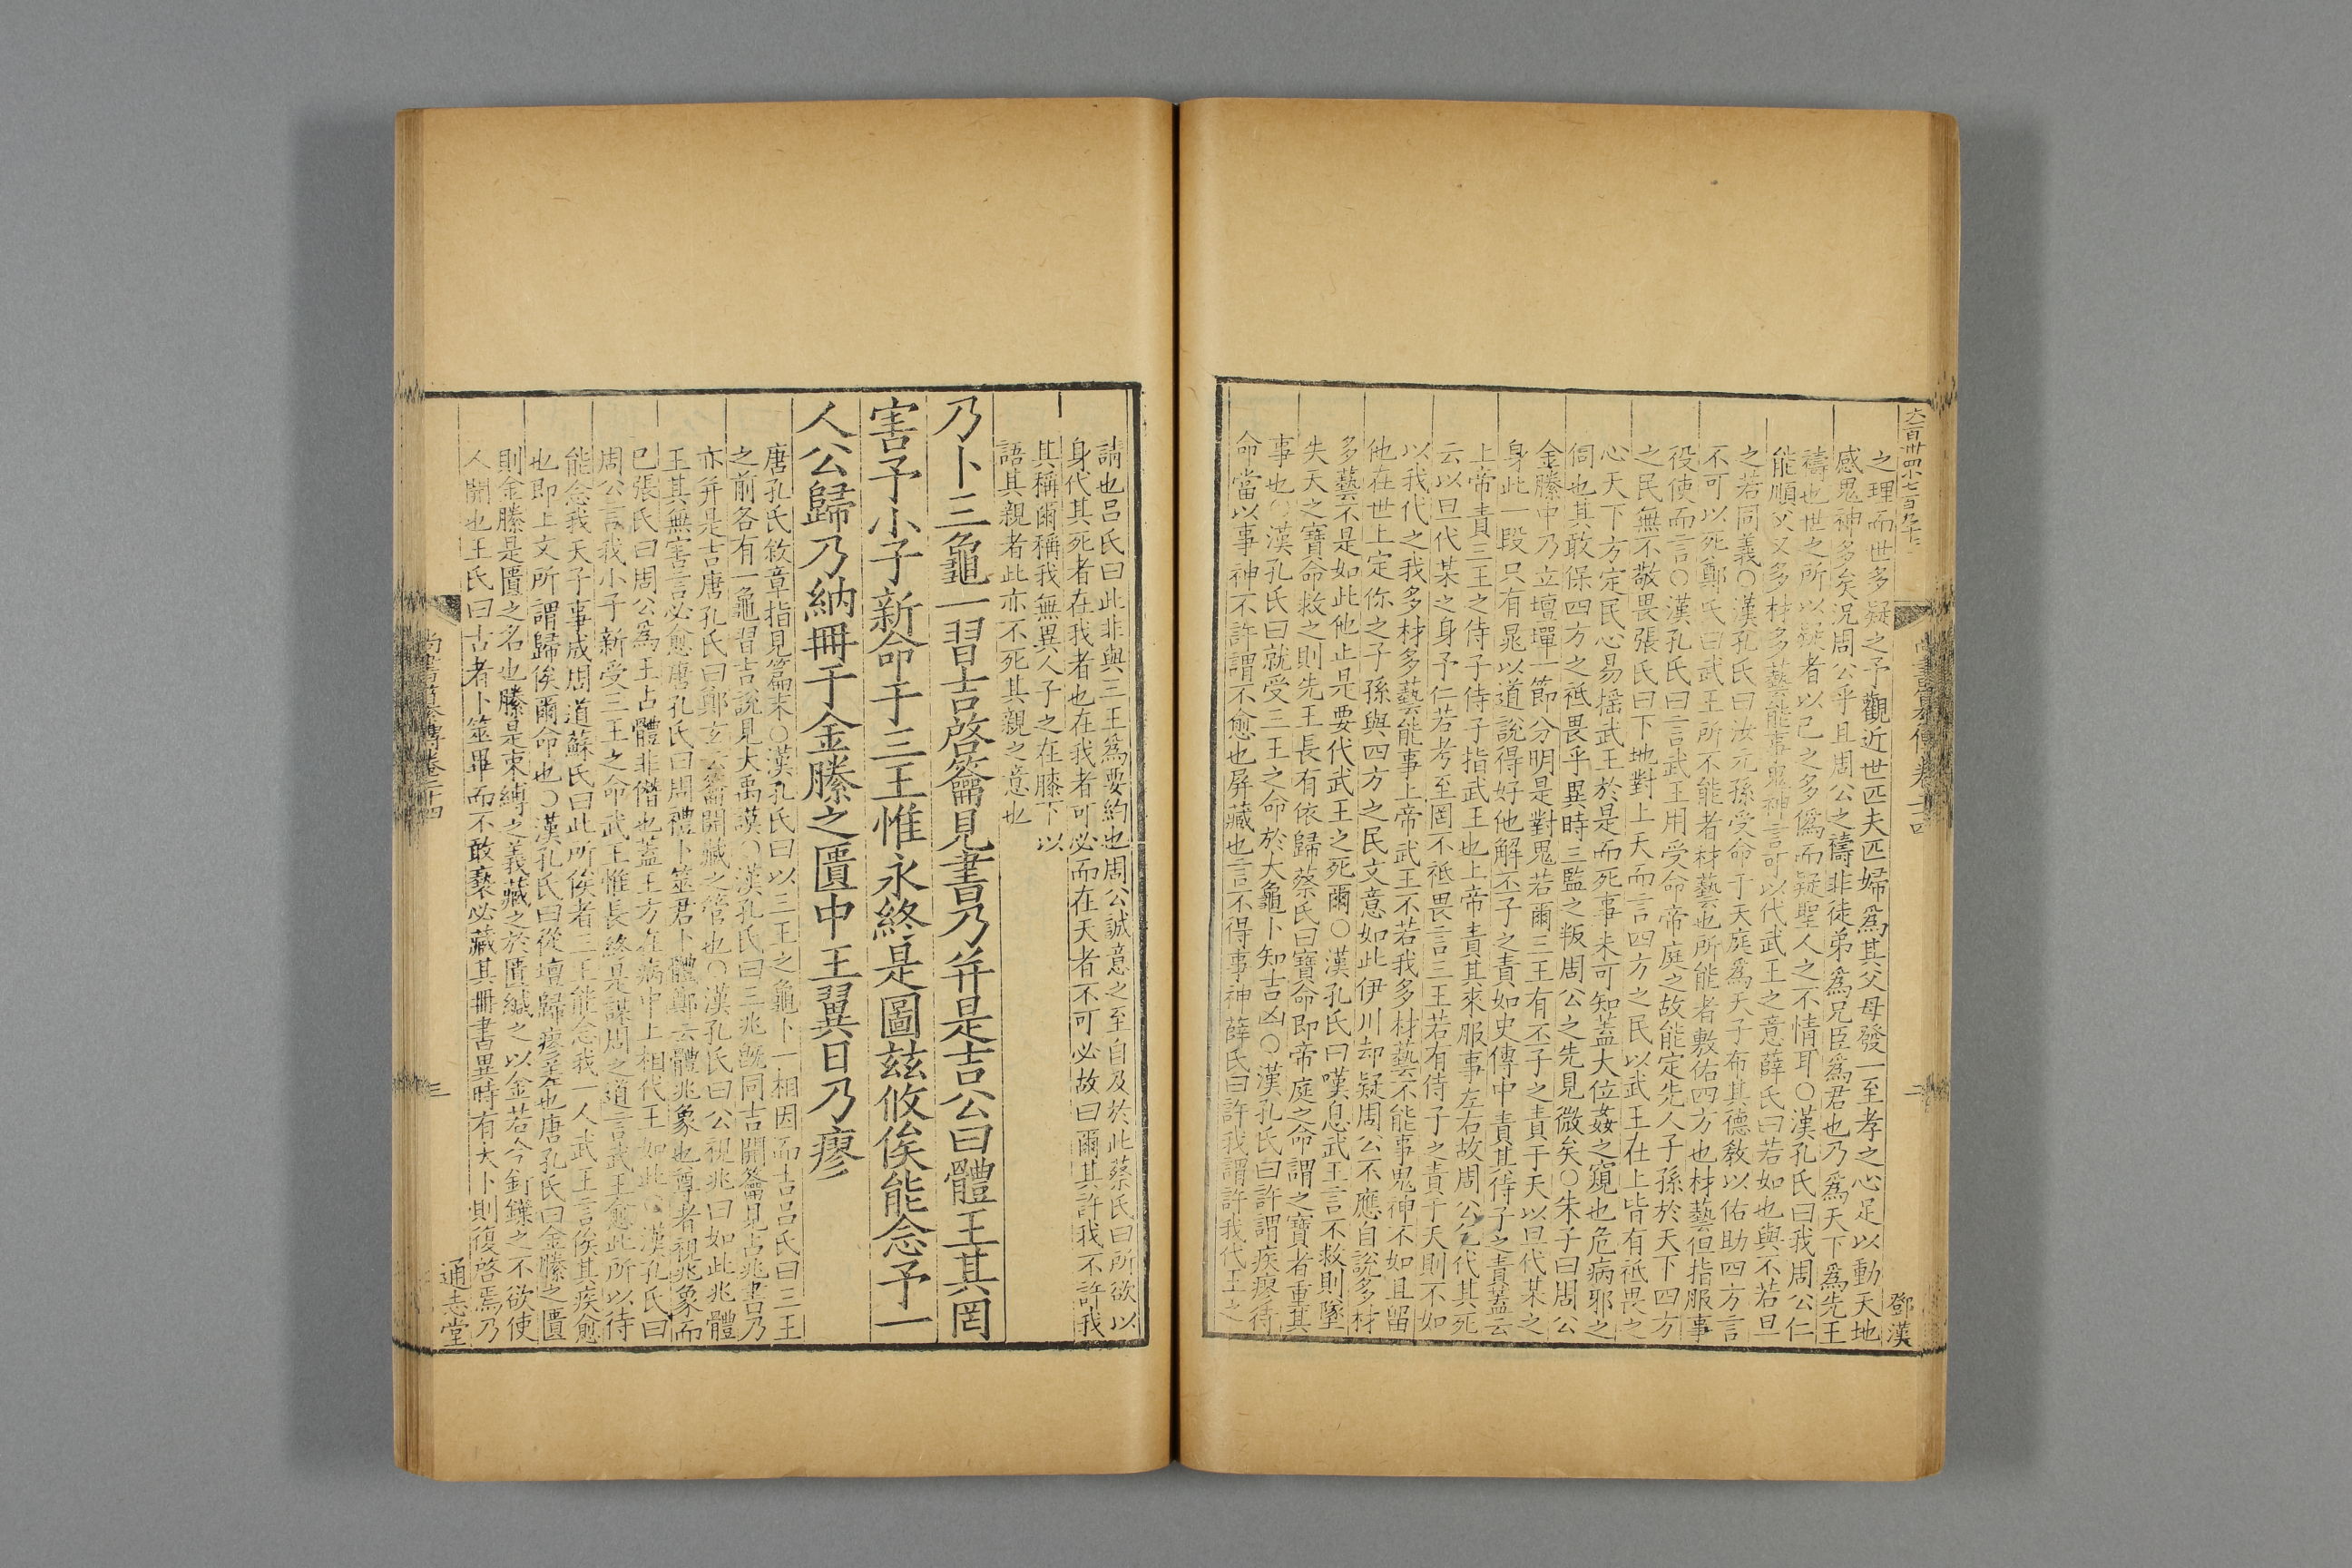 尚書纂傳卷二十四
二
鄧漢
之理而世多疑之予觀近世匹夫匹婦為其父母發一至孝之心足以動天地
感鬼神多矣況周公乎且周公之禱非徒弟為兄臣為君也乃為天下為先王
禱也世之所以疑者以己之多僞而疑聖人之不情耳○漢孔氏曰我周公仁
能順父又多材多藝能事鬼神言可以代武王之意薛氏曰若如也與不若旦
之若同義○漢孔氏曰汝元孫受命于天庭為天子布其德教以佑助四方言
不可以死鄭氏曰武王所不能者材藝也所能者敷佑四方也材藝但指服事
役使而言○漢孔氏曰言武王用受命帝庭之故能定先人子孫於天下四方
之民無不敬畏張氏曰下地對上天而言四方之民以武王在上皆有祗畏之
心天下方定民心易搖武王於是而死事未可知蓋大位姦之窺也危病邪之
伺也其敢保四方之祗畏乎異時三監之叛周公之先見微矣○朱子曰周公
金縢中乃立壇墠一節分明是對鬼若爾三王有丕子之責于天以旦代某之
身此一段只有晁以道說得好他解丕子之責如史傳中責其侍子之責蓋云
上帝責三王之侍子侍子指武王也上帝責其來服事左右故周公乞代其死
云以旦代某之身予仁若考至罔不祗畏言三王若有侍子之責于天則不如
以我代之我多材多藝能事上帝武王不若我多材藝不能事鬼神不如且留
他在世上定你之子孫與四方之民文意如此伊川却疑周公不應自說多材
多藝不是如此他止是要代武王之死爾○漢孔氏曰嘆息武王言不救則墜
失天之寶命救之則先王長有依歸蔡氏曰寶命即帝庭之命謂之寶者重其
事也○漢孔氏曰就受三王之命於大龜卜知吉凶○漢孔氏曰許謂疾瘳待
命當以事神不許謂不愈也屏藏也言不得事神薛氏曰許我謂許我代王之
請也呂氏曰此非與三王為要約也周公誠意之至自及於此蔡氏曰所欲以
身代其死者在我者也在我者可必而在天者不可必故曰爾其許我不許我
其稱爾稱我無異人子之在膝下以
語其親者此亦不死其親之意也
乃卜三龜一習吉啓籥見書乃幷是吉公曰體王其罔
害予小子新命于三王惟永終是圖茲攸俟能念予一
人公歸乃納冊于金縢之匱中王翼日乃瘳
唐孔氏敘章指見篇末○漢孔氏曰以三王之龜卜一相因而吉呂氏曰三王
之前各有一龜習吉說見大禹謨○漢孔氏曰三兆既同吉開籥見占兆書乃
亦幷是吉唐孔氏曰鄭玄云籥開藏之管也○漢孔氏曰公視兆曰如此兆體
王其無害言必愈唐孔氏曰周禮卜筮君卜體鄭云體兆象也尊者視兆象而
已張氏曰周公為王占體非僭也蓋王方在病中上相代王如此○漢孔氏曰
周公言我小子新受三王之命武王惟長終是謀周之道言武王愈此所以待
能念我天子事成周道蘇氏曰此所俟者三王能念我一人武王言俟其疾愈
也即上文所謂歸俟爾命也○漢孔氏曰從壇歸瘳差也唐孔氏曰金縢之匱
則金縢是匱之名也縢是束縛之義藏之於匱緘之以金若今釘鐷之不欲使
人開也王氏曰古者卜筮畢而不敢褻必藏其冊書異時有大卜則復啓焉乃
尚書纂傳卷二十四
三
通志堂